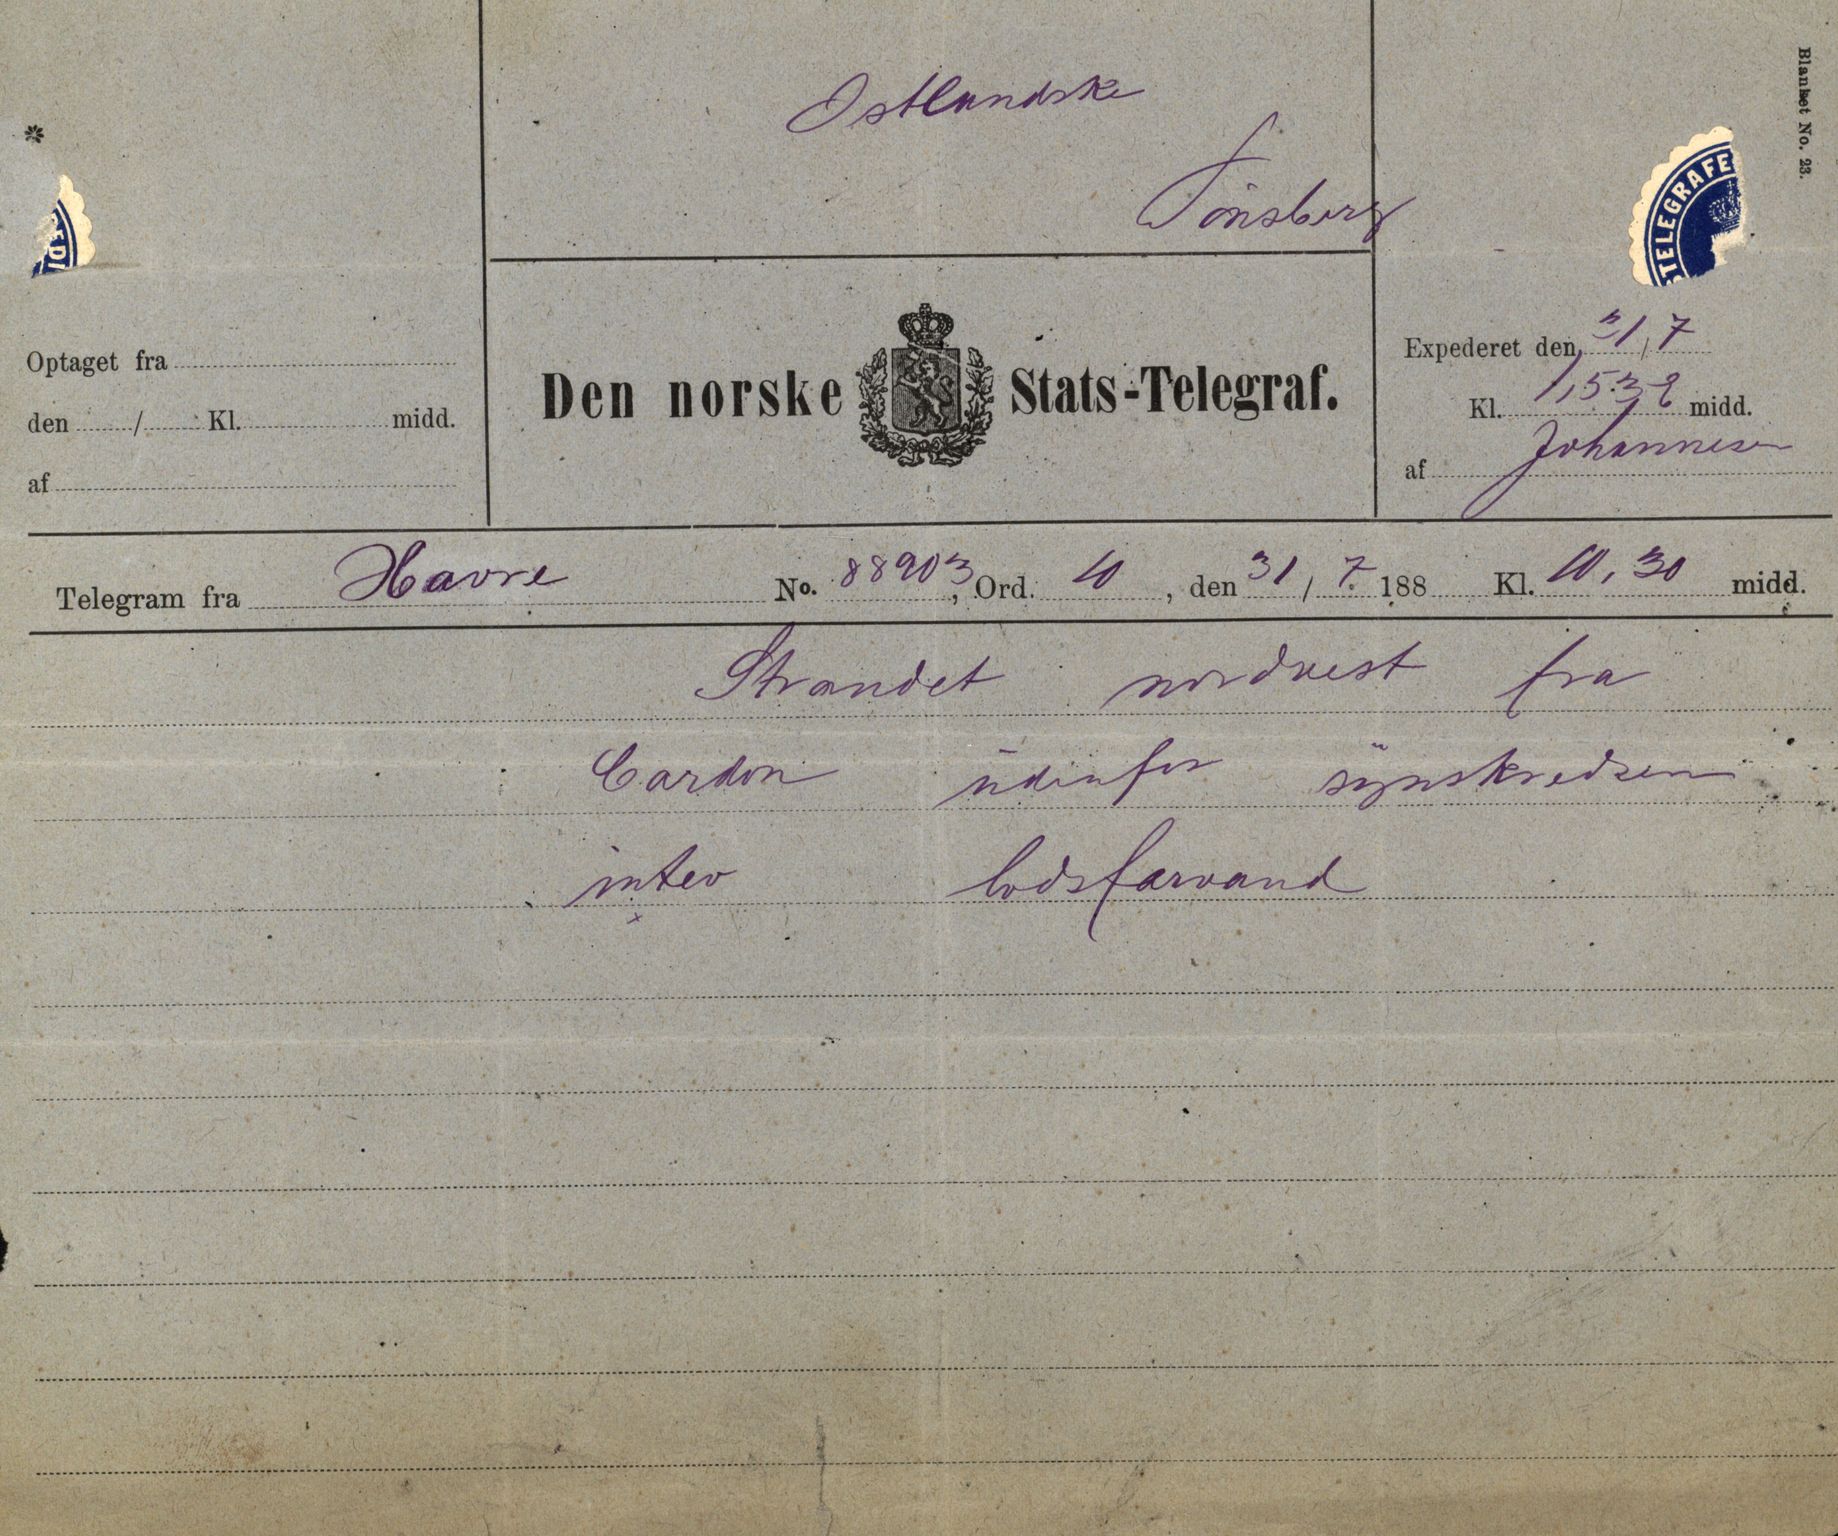 Blanket No. 23.
Ostlandske
Tönsberg
TELEGRAFE
Optaget fra
den / Kl. midd.
af
Den norske Stats-Telegraf.
Expederet den 31/7
Kl. 1,53 e midd.
af Johannesen
Telegram fra Havre No. 88903, Ord. 10, den 31/7 188 Kl. 10,30 midd.
Strandet nordvest fra
Cardon udenfor synskredsen
intev lodsfarvand